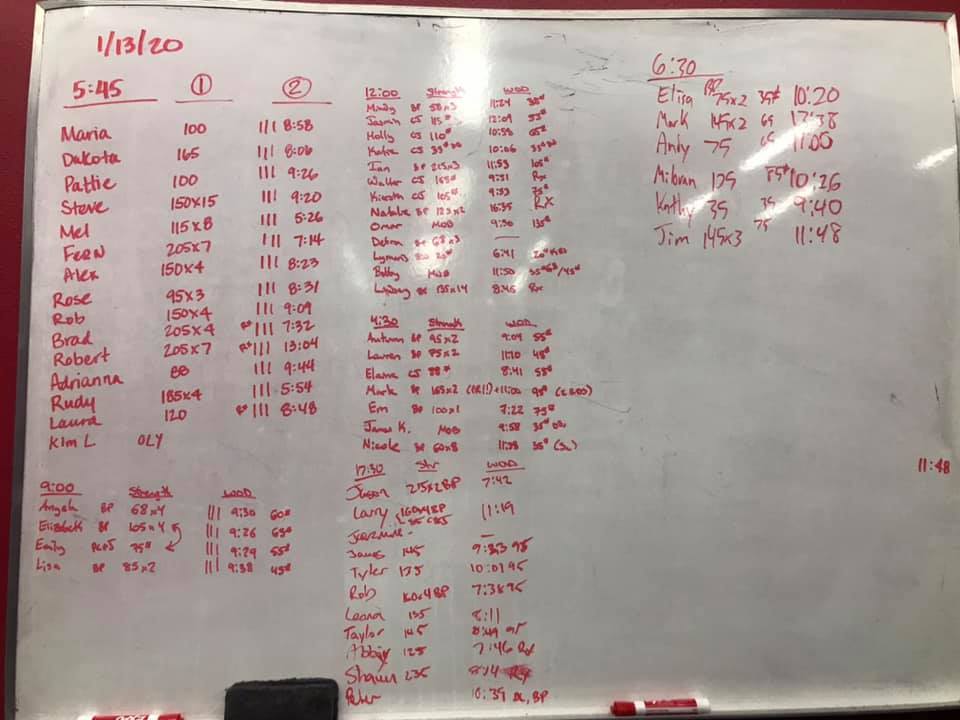 1/13/20
5:45 1 2
Maria 100 ||| 8:58
Dakota 165 ||| 8:06
Pattie 100 ||| 9:26
Steve 150x15 ||| 9:20
Mel 115x8 ||| 5:26
Fern 205x7 ||| 7:14
Alex 150x4 ||| 8:23
Rose 95x3 ||| 8:31
Rob 150x4 ||| 9:09
Brad 205x4 ||| 7:32
Robert 205x7 ||| 13:04
Adrianna 88 ||| 9:44
Rudy 185x4 ||| 5:54
Laura 120 ||| 8:48
Kim L OLY
9:00 Strength WOD
Angela BP 68x4 ||| 9:30 60#
Elizabeth BP 105x4 ||| 9:26 65#
Emily 75# ||| 9:29 55#
Lisa BP 85x2 ||| 9:38 45#
12:00 Strength WOD
Mindy BP 58x3 11:24
Jasmin CJ 115# 12:09 55#
Holly CJ 110# 10:58 65#
Katie CJ 35# 10:06 35#
Ian BP 215x3 11:53 105#
Walter CJ 165# 9:51 Rx
CJ 105# 9:53 75#
Natalie BP 125x2 16:35 RX
Omar MOB 9:30 135#
68x3 —
20# 6:41 20#
Bobby MOB 11:50 35#
Lindsay 135x14 8:45 Rx
4:30 Strength WOD
Autumn BP 95x2 9:09 55#
Lauren BP 75x2 11:10 45#
Elaine CJ 88# 8:41 55#
Mark BP 165x2 (PR!!) +11:00 95#
Em BP 100x1 7:22 75#
James K. MOB 9:58 35# DB
Nicole BP 60x8 11:38 35#
17:30 Str WOD
Jason 215x2 BP 7:42
Larry 160x4 BP 11:19
—
James 145 95
Tyler 135 10:01 95
Rob 160x4 BP 7:38 95
Leana 135 8:11
Taylor 145 8:49 95
Abbijy 125 7:46 Rx
Shawn 235 8:14
Peter 10:39 BP
6:30
Elisa 75x2 35# 10:20
Mark 145x2 65
Andy 75 65 11:05
125 85# 10:26
Kathy 35 35 9:40
Jim 145x3 75 11:48
11:48